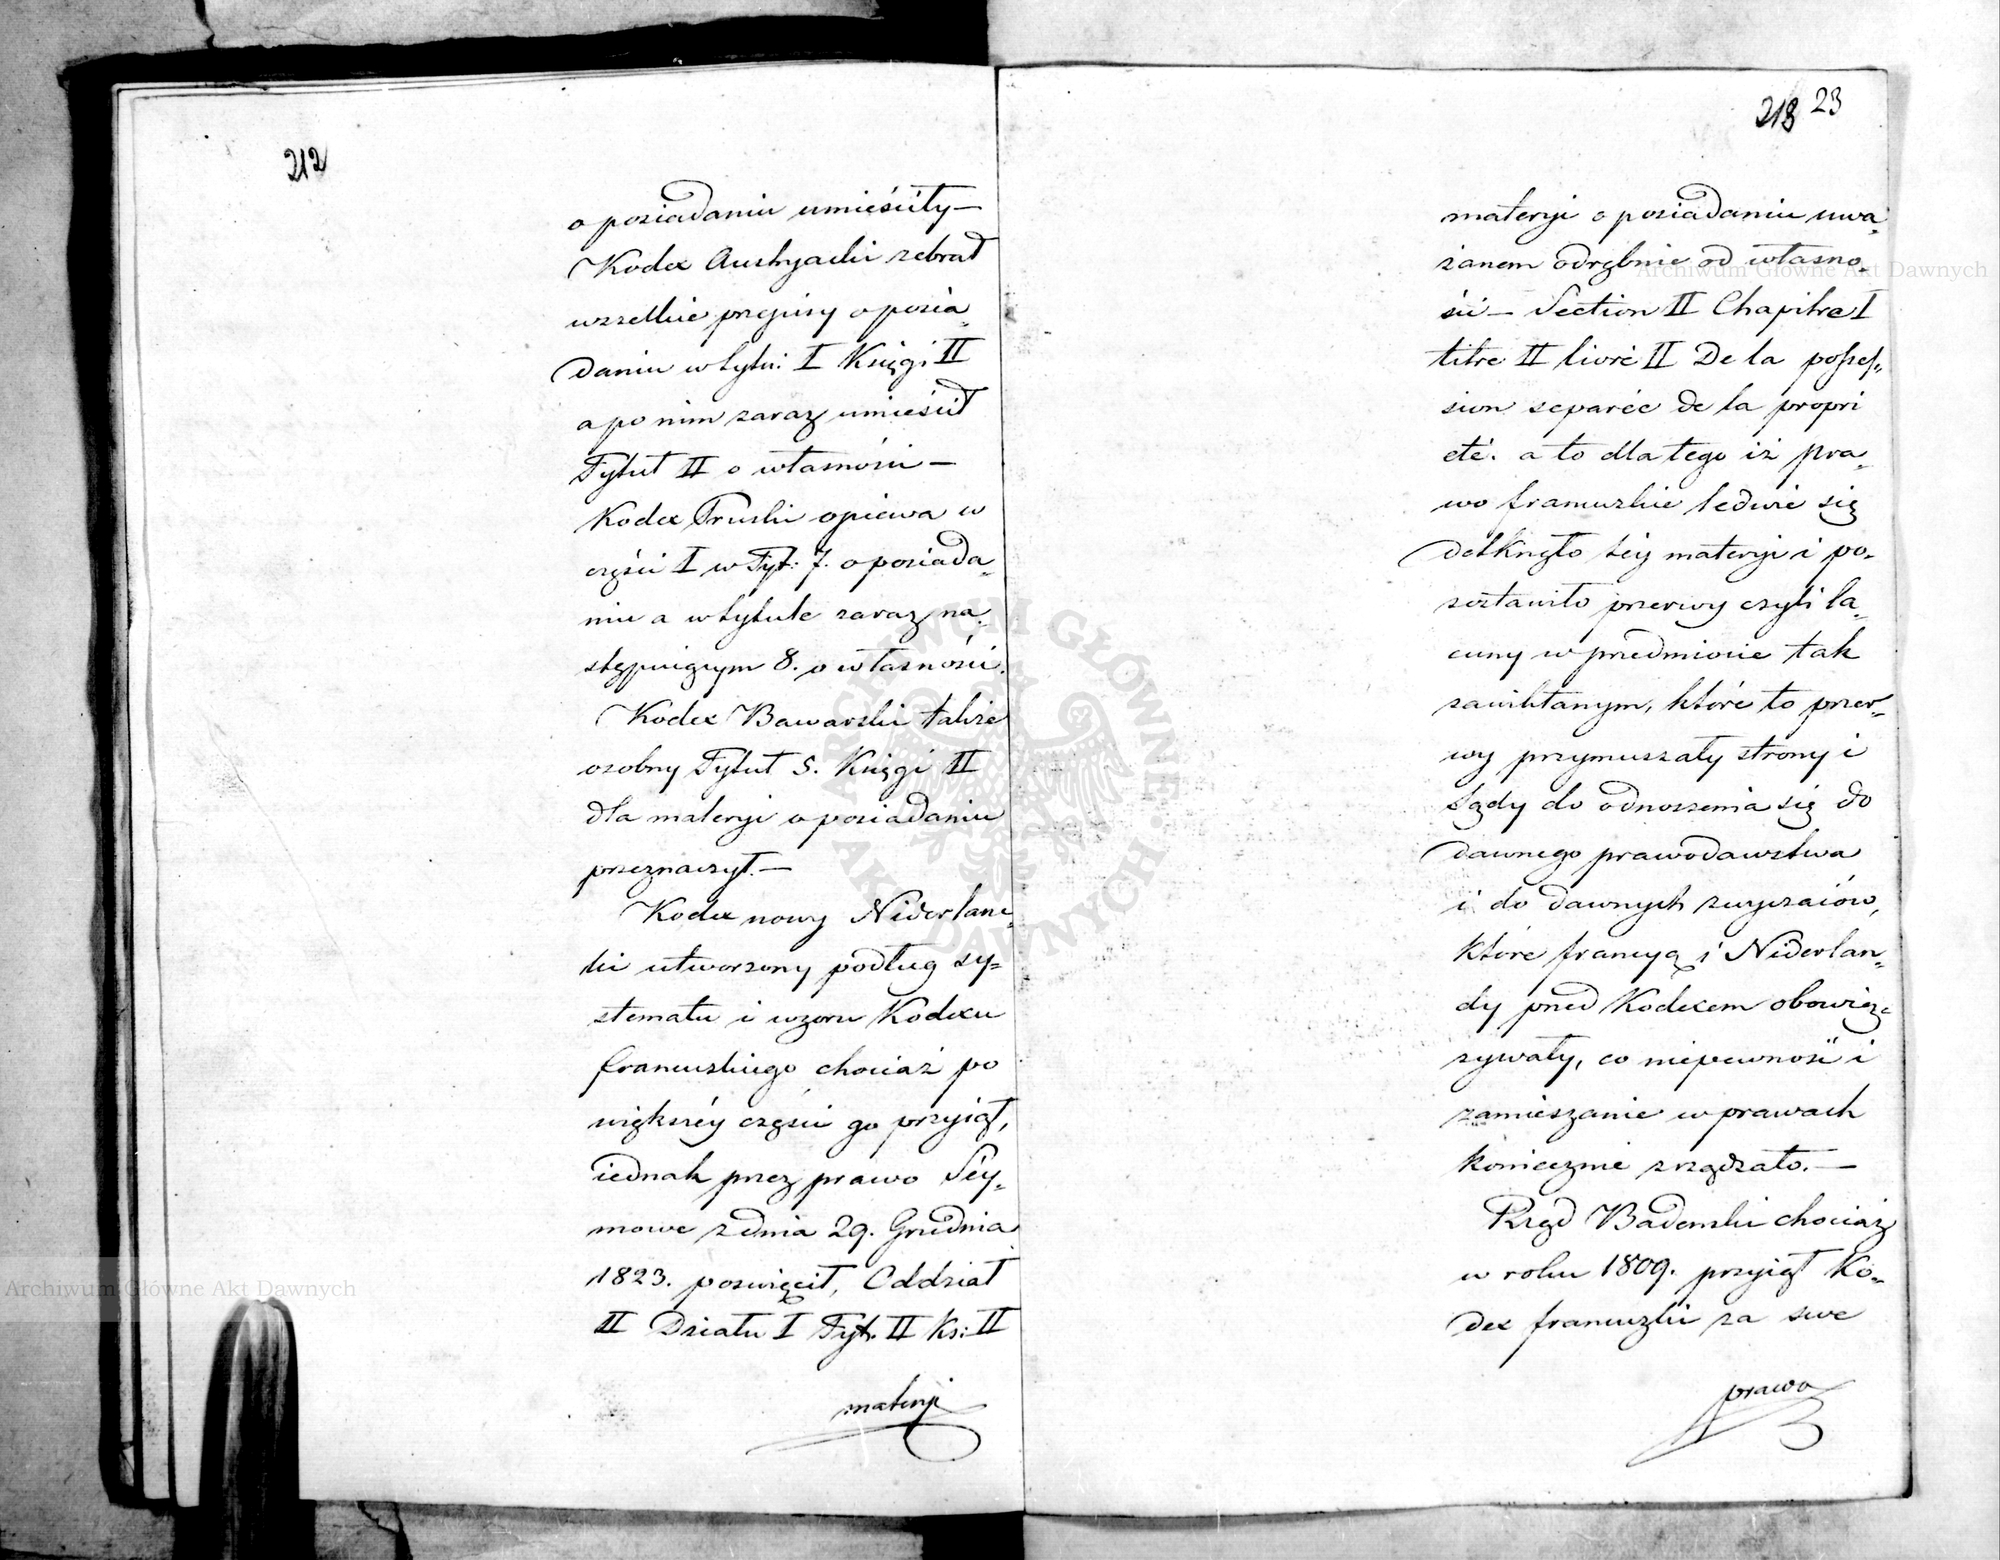 212
o posiadaniu umieściły —
Kodex Austryacki zebrał
wszelkie przepisy o posia„
daniu w tytu: I Księgi II
a po nim zaraz umieścił
Tytuł II o własności —
Kodex Pruski opiewa w
części I w Tyt: 7. o posiada„
niu a w tytule zaraz na„
stępuiącym 8. o własności.
Kodex Bawarski także
osobny Tytuł 5. Księgi II
dla materyi o posiadaniu
przeznaczył. —
Kodex nowy Niderlanc„
ki utworzony podług sy„
stematu i wzoru Kodexu
francuskiego chociaż po
większéy części go przyiął,
iednak przez prawo Séy„
mowe z dnia 29. Grudnia
1823. poswięcił, Oddział
II Działu I Tyt. II Ks: II
materyi
213 23
materyi o posiadaniu uwa„
żanem odrębnie od własno„
ści — Section II Chapitre I
titre II livre II De la posses„
sion separée de la propri
eté. a to dla tego iż pra„
wo francuzkie ledwie się
dotknęło téy materyi i po„
zostawiło przerwy czyli la„
cuny w przedmiocie tak
zawikłanym, które to przer„
wy przymuszały strony i
Sądy do odnoszenia się do
dawnego prawodawstwa
i do dawnych zwyczaiów,
które francyą i Niderlan„
dy przed Kodexem obowiąz„
zywały, co niepewność i
zamieszanie w prawach
koniecznie zrządzało. —
Rząd Badeński chociaż
w roku 1809. przyiął Ko„
dex francuzki za swe
prawo
Archiwum Główne Akt Dawnych
Archiwum Główne Akt Dawnych
ARCHIWUM GŁÓWNE AKT DAWNYCH